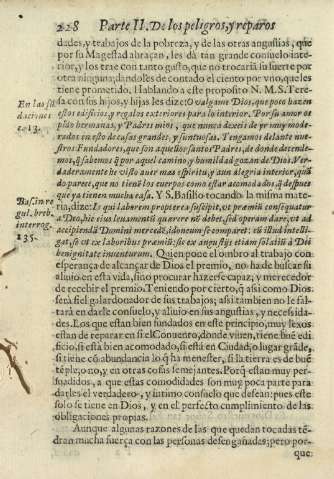 228 Parte II. De los peligros, y reparos
dades, y trabajos de la pobreza, y de las otras angustias, que
por su Magestad abraçan, les dà tan grande consuelo inte-
rior, y los trae con tanto gusto, que no trocarià su suerte por
otra ninguna; dandoles de contado el ciento por vno, que les
tiene prometido. Hablando a este proposito N. M. S. Tere-
En las fũ
sa con sus hijos, y hijas les dize: O valgame Dios, que poco hazen
daciones
estos edificios, y regalos exteriores para lo interior. Por su amor os
c. 13.
pido hermanas, y Padres mios, que nunca dexeis de ir muy mode-
rados en esto de casas grandes, y suntuosas. Tengamos delante nue-
stros Fundadores, que son aquellos santos Padres, de donde decende-
mos, q̃ sabemos q̃ por aquel camino, y humildad gozan de Dios. Ver-
daderamente he visto auer mas espiritu, y aun alegria interior, quã
do parece, que no tienẽ los cuerpos como estar acomodados, q̃ despues
Bas. in re
que ya tienen mucha casa. Y S. Basilio tocando la misma mate-
gul. breb.
ria, dize: Is qui laborem propterea suscipit, vt præmiũ consequatur
interrog.
à Deo, hic eius leuamenti quærere nõ debet, sed operam dare, vt ad
235.
accipiendã Domini mercedẽ, idoneum se comparet: cũ illud intelli-
gat, se vt ex laboribus præmiũ: sic ex angustijs etiam solatiũ à Dei
benignitate inuenturum. Quien pone el ombro al trabajo con
esperança de alcançar de Dios el premio, no ha de buscar su
aliuio en esta vida, sino procurar hazerse capaz, y merecedor
de recebir el premio. Teniendo por cierto, q̃ asi como Dios
serà fiel galardonador de sus trabajos; assi tambien no le fal-
tarà en darle consuelo, y aliuio en sus angustias, y necesida-
des. Los que estan bien fundados en este principio, muy lexos
estan de reparar en si el Conuento, donde viuen, tiene buẽ edi-
ficio, si està bien acomodado, si està en Ciudad, o lugar grãde,
si tiene cõ abundancia lo q̃ ha menester, si la tierra es de buẽ
tẽple, o no, y en otras cosas semejantes. Porq̃ estan muy per-
suadidos, a que estas comodidades son muy poca parte para
darles el verdadero, y intimo consuelo que desean: pues este
solo se tiene en Dios, y en el perfecto cumplimiento de las
obligaciones propias.
Aunque algunas razones de las que quedan tocadas tẽ-
dran mucha fuerça con las personas desengañadas; pero por-
que